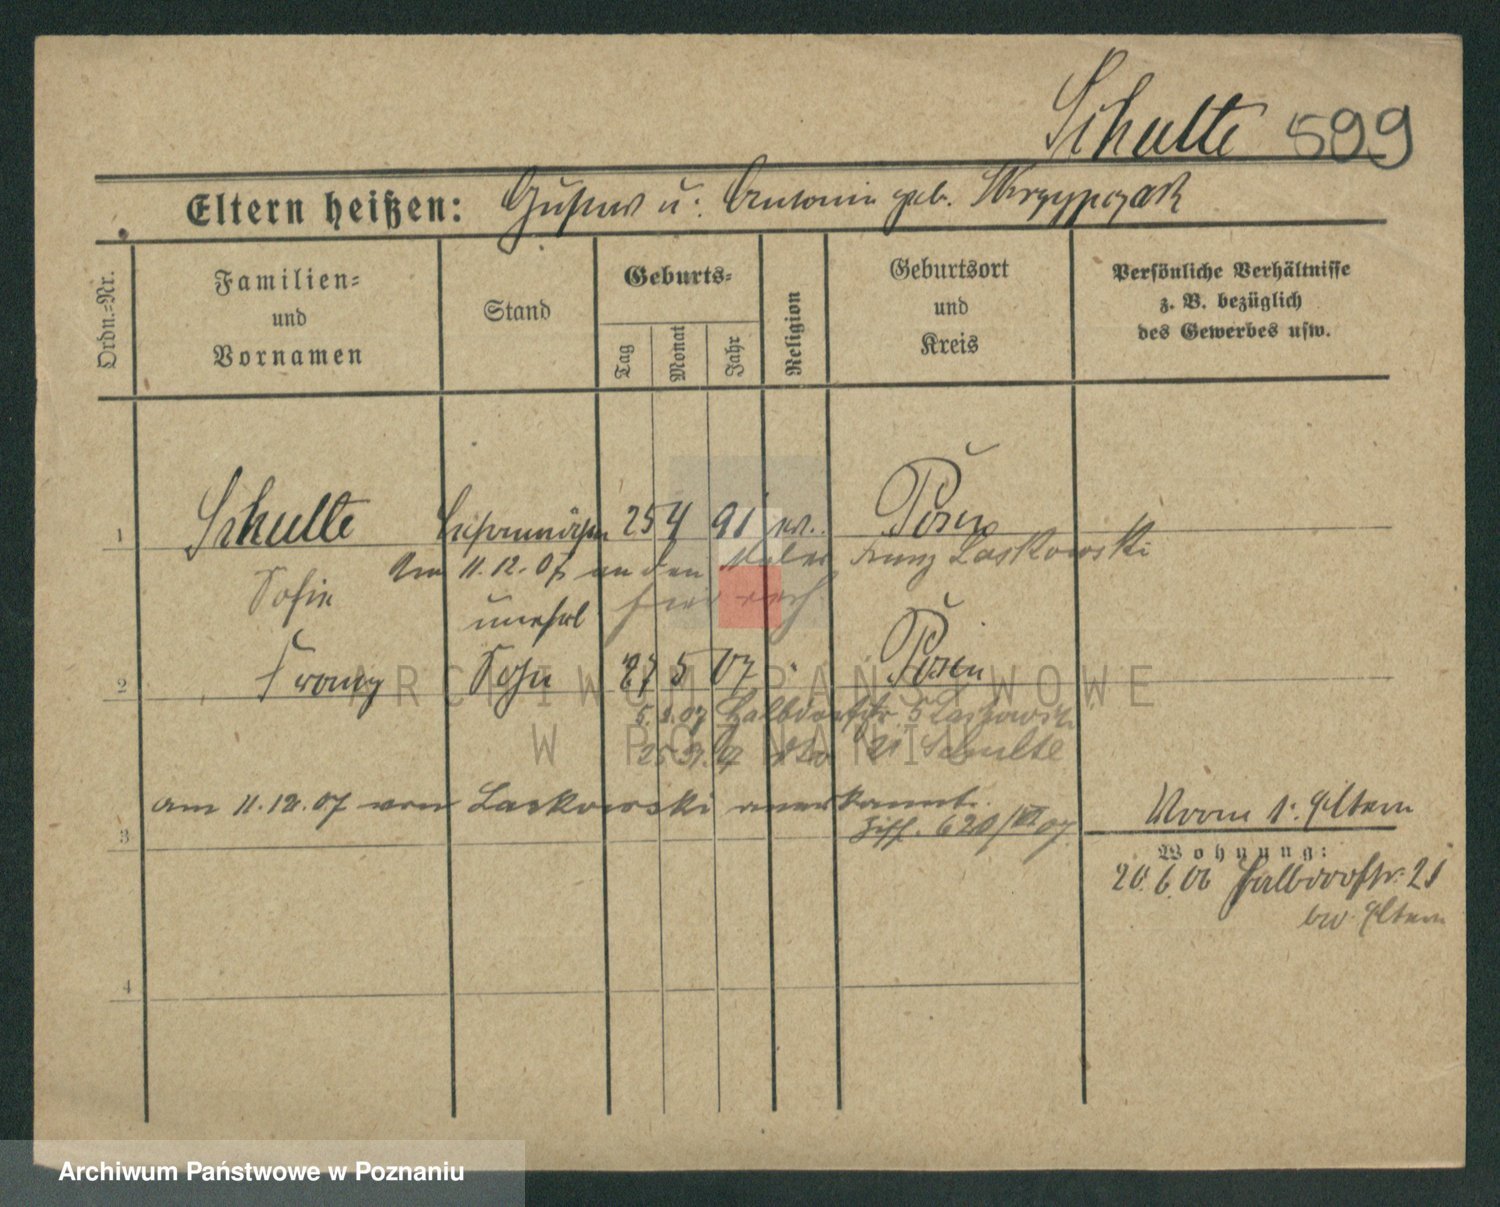 Schulte 599
Eltern heißen: Gustav u. Antonie geb. Skrzypczak
Ordn.=Nr.
Familien=
und
Vornamen
Stand
Geburts=
Tag
Monat
Jahr
Religion
Geburtsort
und
Kreis
Persönliche Verhältnisse
z. B. bezüglich
des Gewerbes usw.
1 Schulte 25 4 91 Posen
Am 11.12.07 an den Maler Franz Laskowski
Sofie
unehl
2 Franz Sohn 27 5 07 Posen
ARCHIWUM PAŃSTWOWE
Halbdorfstr 5 Laskowski
W POZNANIU
21 Schulte
am 11.12.07 von Laskowski anerkannt.
3
Eltern
Wohnung:
20.6.06 Halbdorfstr. 21
Eltern
4
Archiwum Państwowe w Poznaniu